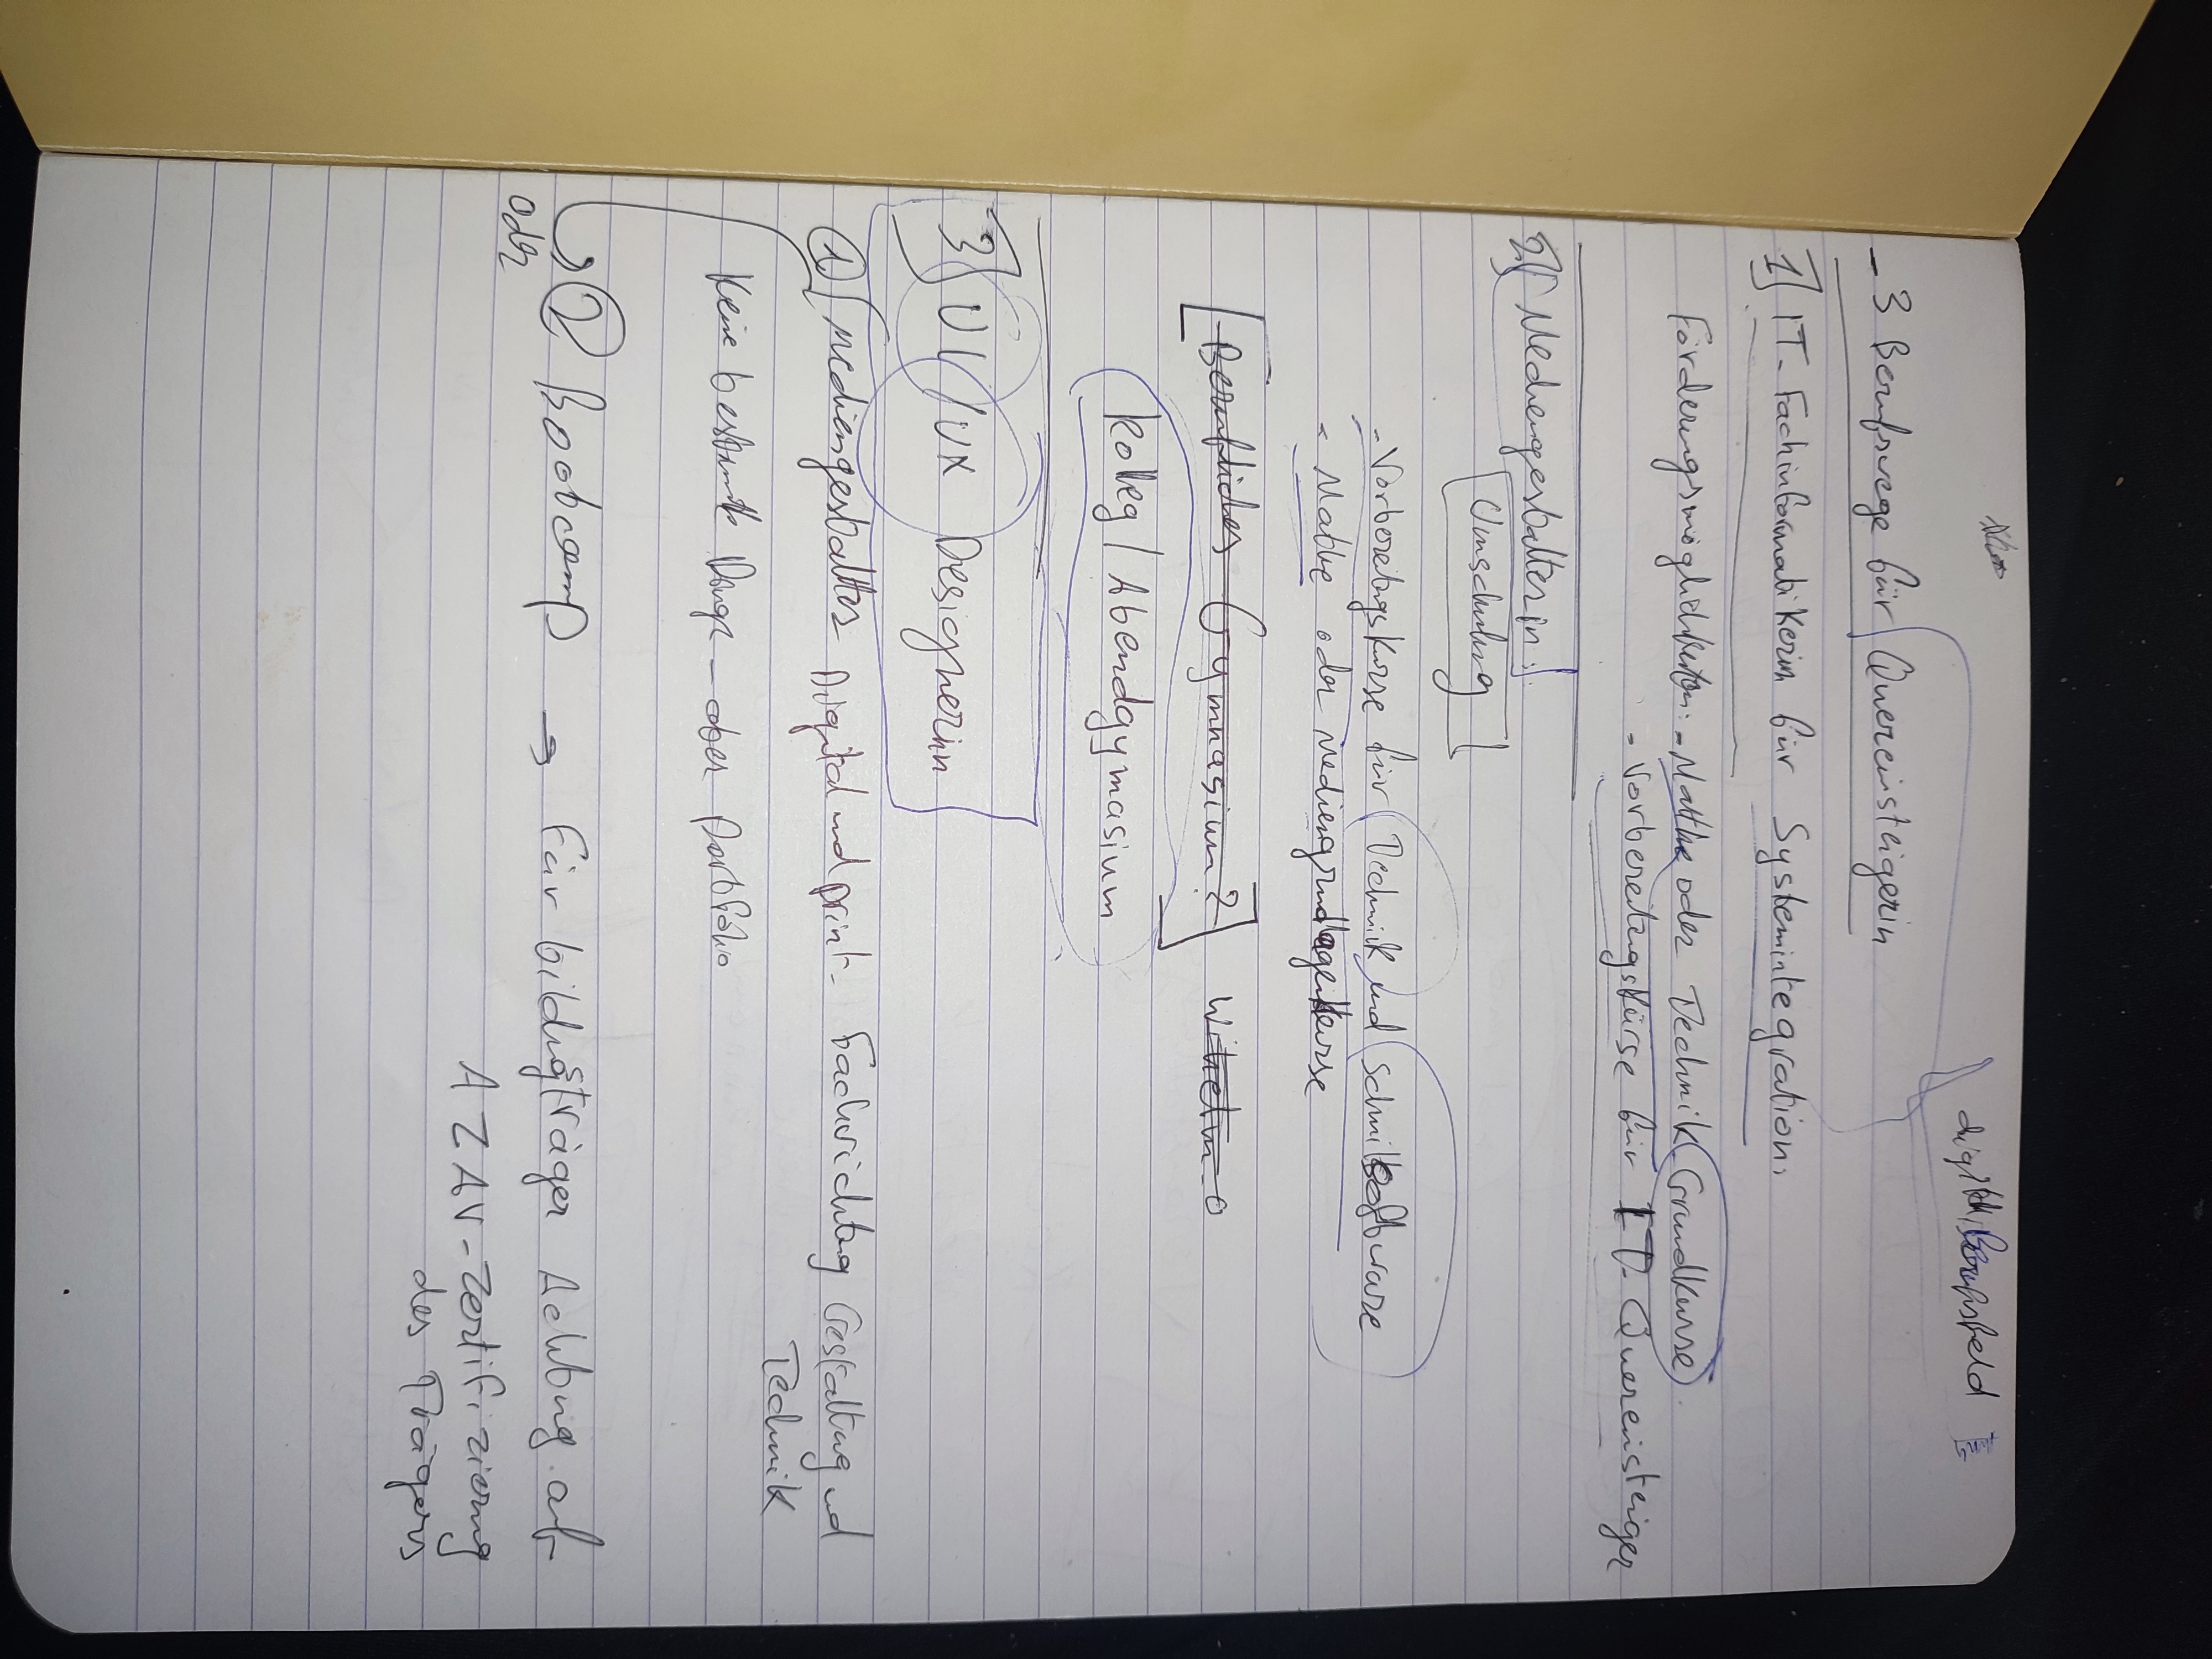 digital Berufsfeld
- 3 Berufswege für Quereinsteigerin
1) IT-Fachinformatikerin für Systemintegration:
Förderungsmöglichkeiten: - Mathe oder Technik Grundkurse.
- Vorbereitungskürse für IT-Quereinsteiger
2) Mediengestalterin:
Umschulung
- Vorbereitungskurse für Technik und
- Mathe oder Mediengrundlagenkurse
Berufliches Gymnasium?
Kolleg / Abendgymnasium
3) UI/UX Designerin
1) Mediengestalter Digital und print- Fachrichtung Gestaltung und
Technik
Keine bestimmte Dinge - aber Portfolio
2) Bootcamp → Für bildungsträger Achtung auf
oder
AZAV-Zertifizierung
des Trägers